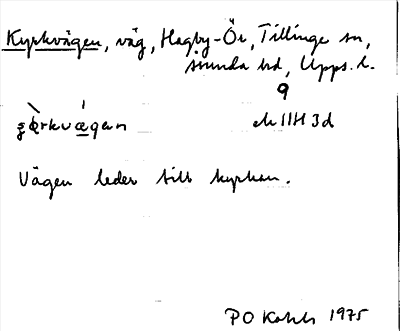 Kyrkvägen, väg, Hagby-Ör, Tillinge sn,
Åsunda hd, Upps. l.
9
ek 11H 3d
Vägen leder till kyrkan.
PO 1975